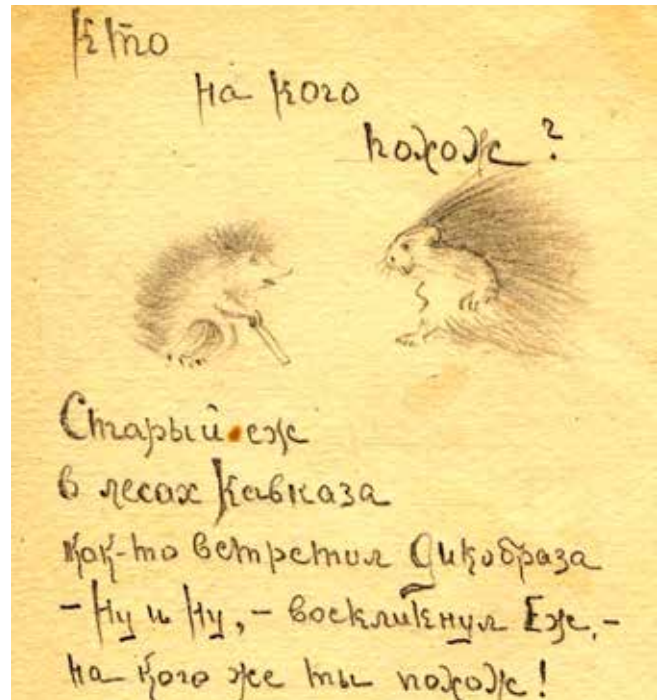 Кто
на кого
похож?
Старый еж
в лесах Кавказа
как-то встретил Дикобраза
- Ну и ну, - воскликнул Еж, -
на кого же ты похож!